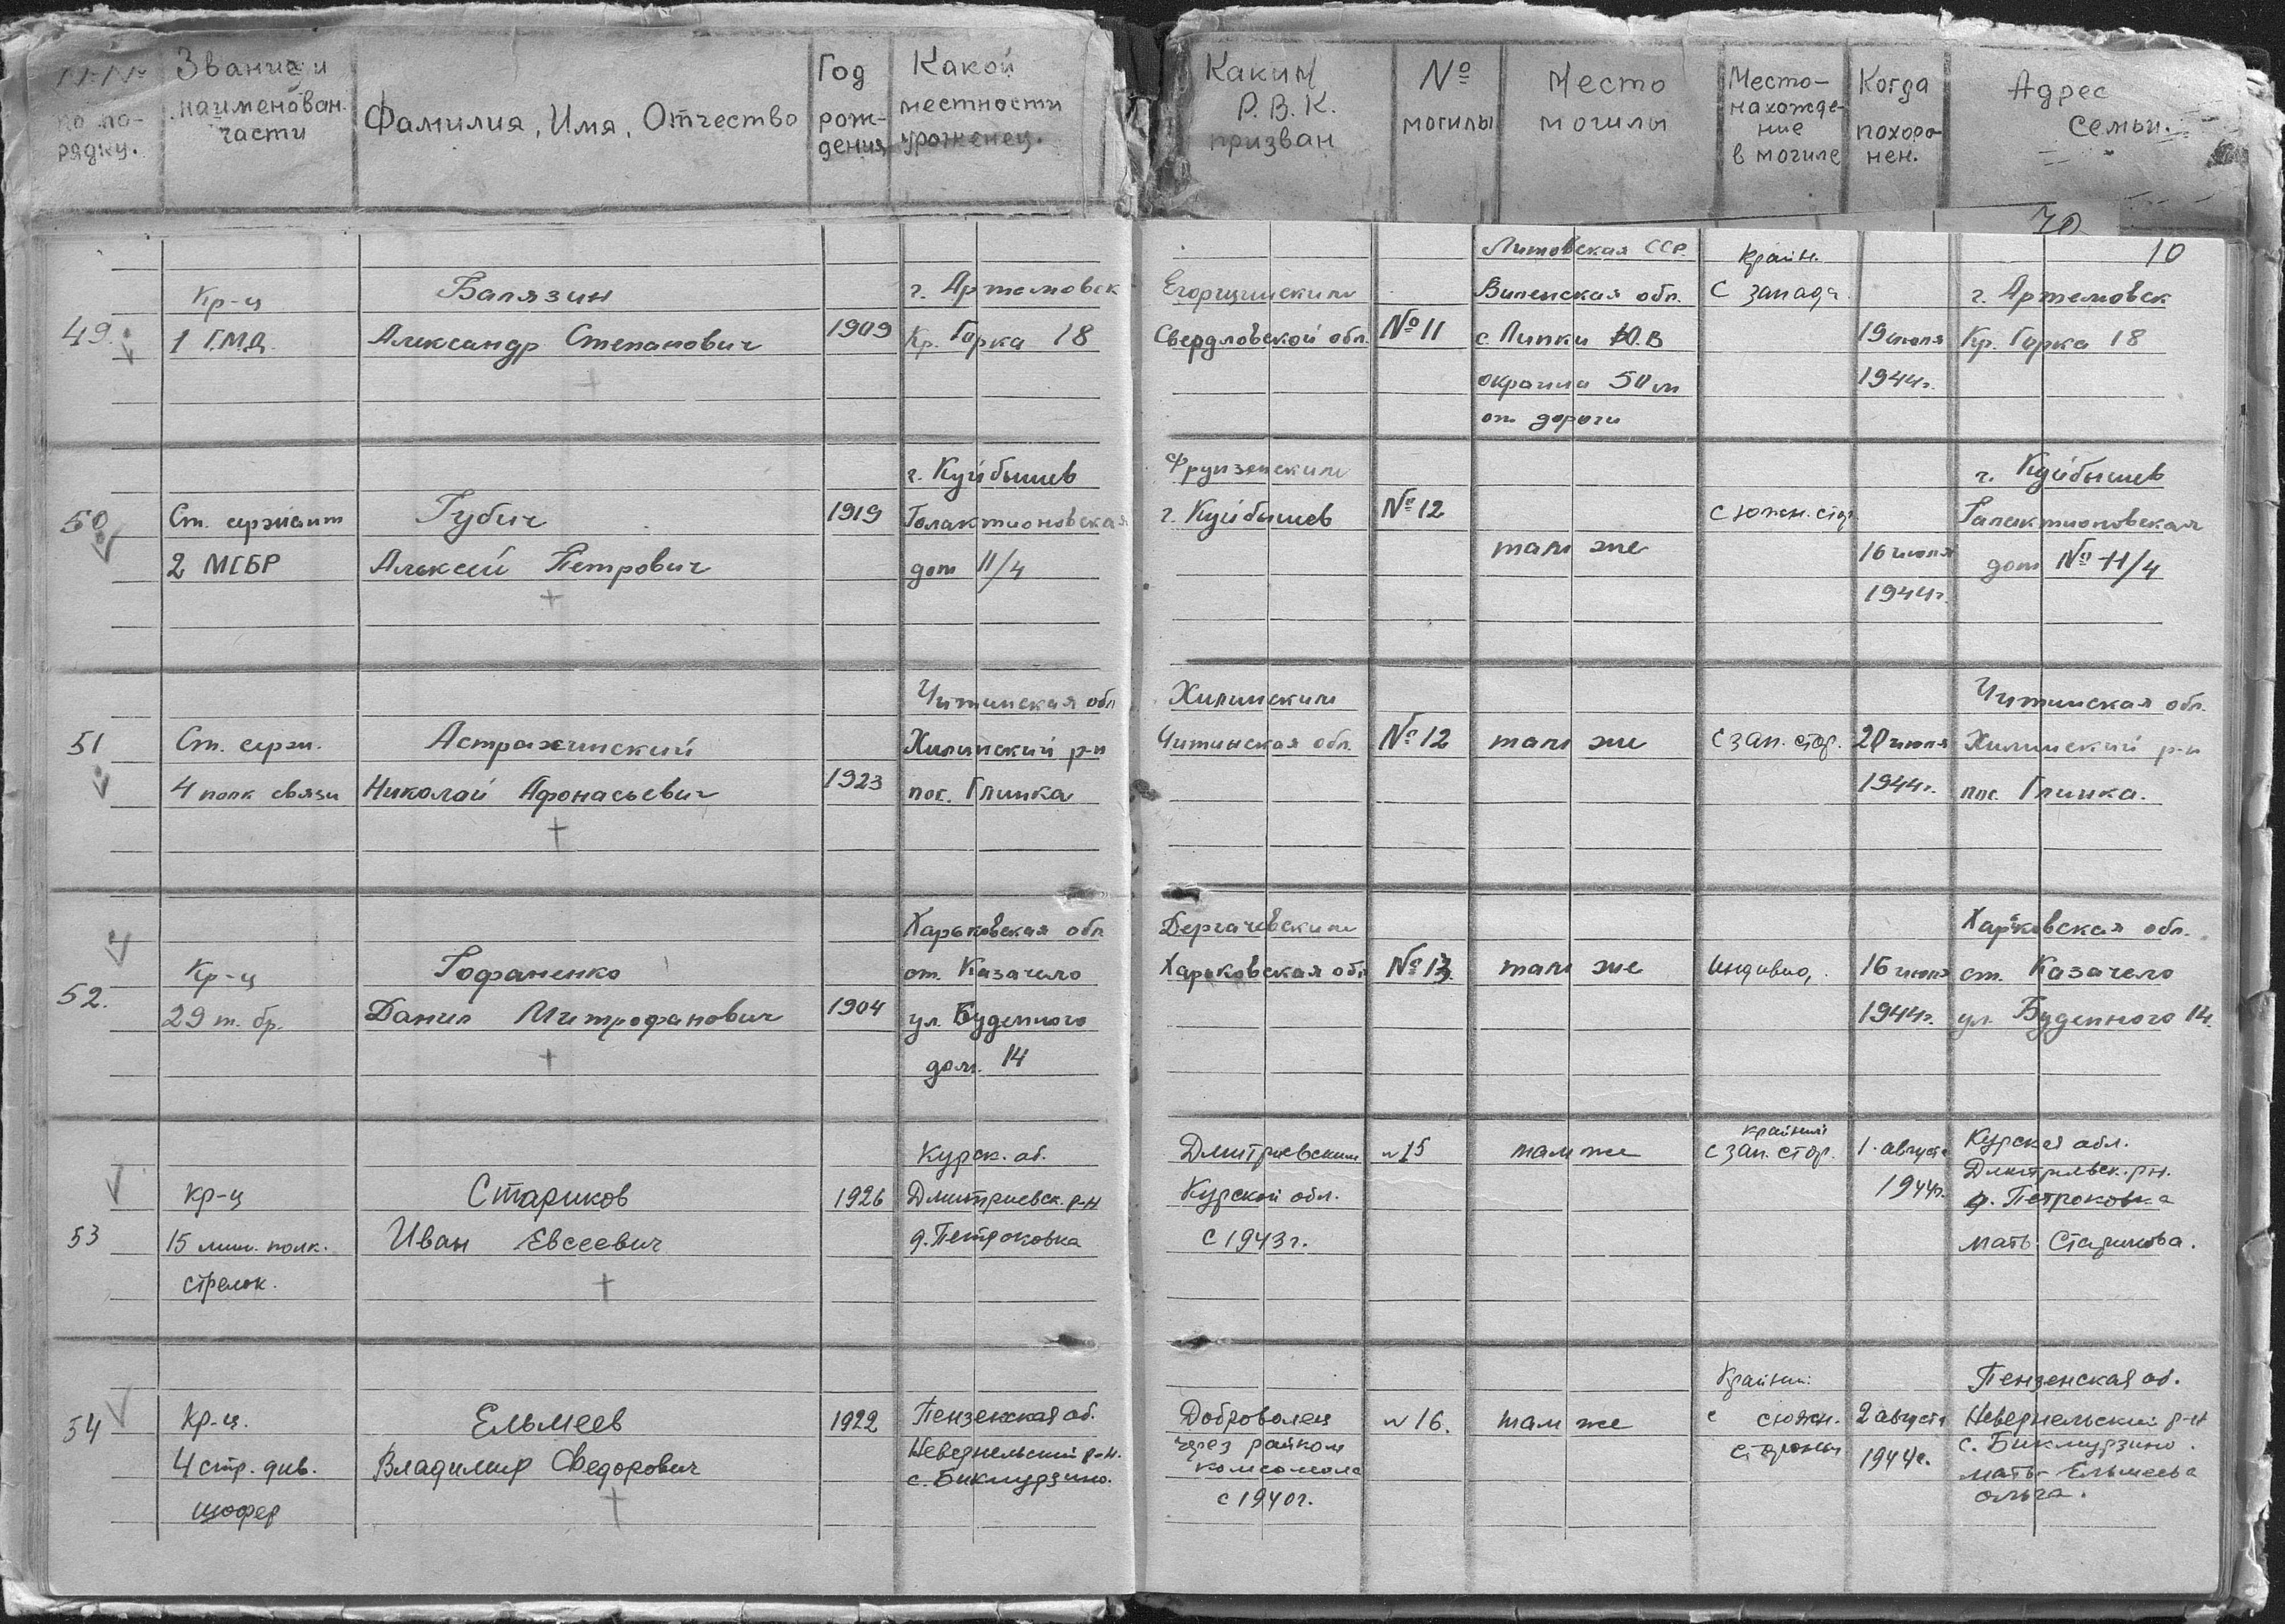 №№ по по-рядку.
Звание и наименован. части
Фамилия, Имя, Отчество
Год рож-дения
Какой местности урожнец.
Каким Р.В.К. призван
№ могилы
Место могилы
Место-нахожде-ние в могиле
Когда похоро-нен.
Адрес семьи.
70
10
49.
Кр-ц
1 Г.М.Д.
Балязин
Александр Степанович
1909
г. Артемовск
Кр. Горка 18
Егоршинским
Свердловской обл.
№ 11
Литовская ССР.
Виленская обл.
с. Липки Ю.В
окраина 50 м
от дороги
Крайн.
с запада.
19 июля
1944г.
г. Артемовск
Кр. Горка 18
50
Ст. сержант
2 МСБР
Губич
Алексей Петрович
1919
г. Куйбышев
Галактионовская
дом 11/4
Фрунзенским
г. Куйбышев
№ 12
там же
с южн. стор.
16 июля
1944г.
г. Куйбышев
Галактионовская
дом № 11/4
51
Ст. серж.
4 полк связи
Астраханский
Николай Афонасьевич
1923
Читинская обл
Хилинский р-н
пос. Глинка
Хилинским
Читинская обл.
№ 12
там же
с зап. стор.
20 июля
1944г.
Читинская обл.
Хилинский р-н
пос. Глинка.
52.
Кр-ц
29 т. бр.
Гофаненко
Данил Митрофанович
1904
Харьковская обл
ст. Казачело
ул. Буденного
дом. 14
Дергачевским
Харьковская обл
№ 13.
там же
индивид.
16 июля
1944г.
Харьковская обл.
ст. Казачело
ул. Буденного 14.
53
кр-ц
15 мин. полк.
стрелок.
Стариков
Иван Евсеевич
1926
Курск. об.
Дмитриевск. р-н
д. Петроковка
Дмитриевским
Курской обл.
с 1943г.
№ 15
там же
крайний
с зап. стор.
1. августа
1944г.
Курская обл.
Дмитрьевск. рн.
д. Петроковка
мать Старикова.
54
Кр-ц.
4 стр. див.
шофер
Ельмеев
Владимир Федорович
1922
Пензенская об.
Неверкельский р-н.
с. Бикмурзино.
Доброволец
через райком
комсомола
с 1940г.
№ 16.
там же
Крайний
с с южн.
стороны
2 августа
1944г.
Пензенская об.
Неверкельский р-н
с. Бикмурзино.
мать- Ельмеева
Ольга.